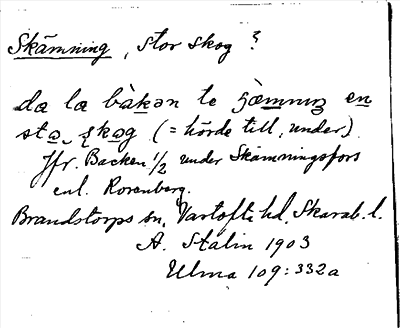 Skämning, stor skog?
da la bàkən te ʂæ̀mnıŋ en
sto skog (= hörde till, under).
Jfr. Backen 1/2 under Skämningsfors
enl. Rosenberg.
Brandstorps sn, Vartofta hd. Skarab. l.
A. Stalin 1903
Ulma 109:332a